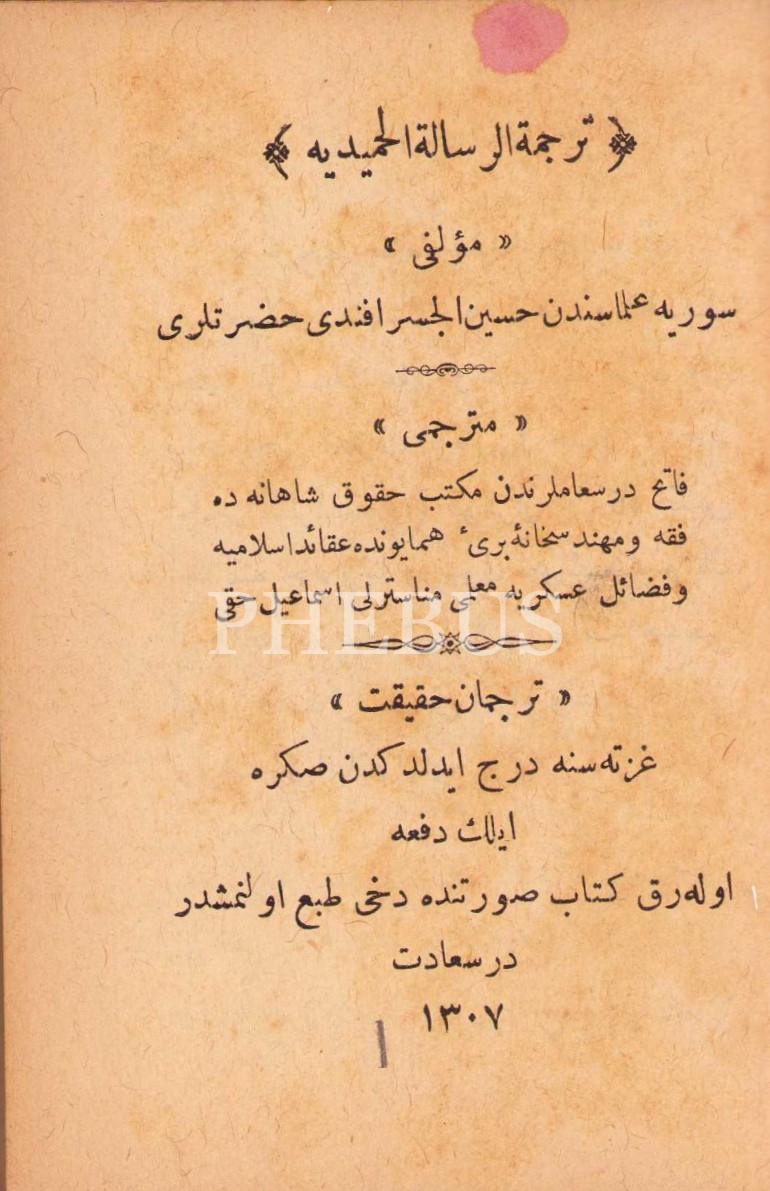 ﴿ ترجمة الرسالة الحميديه ﴾
« مؤلفى »
سوريه علماسندن حسين الجسر افندى حضرتلرى
« مترجمى »
فاتح درسعاملرندن مكتب حقوق شاهانه ده
فقه ومهندسخانۀ برىء همايونده عقائد اسلاميه
وفضائل عسكريه معلمى مناسترلى اسماعيل حقى
PHEBUS
« ترجمان حقيقت »
غزته سنه درج ايدلدكدن صكره
ايلك دفعه
اوله رق كتاب صورتنده دخى طبع اولنمشدر
درسعادت
١٣٠٧